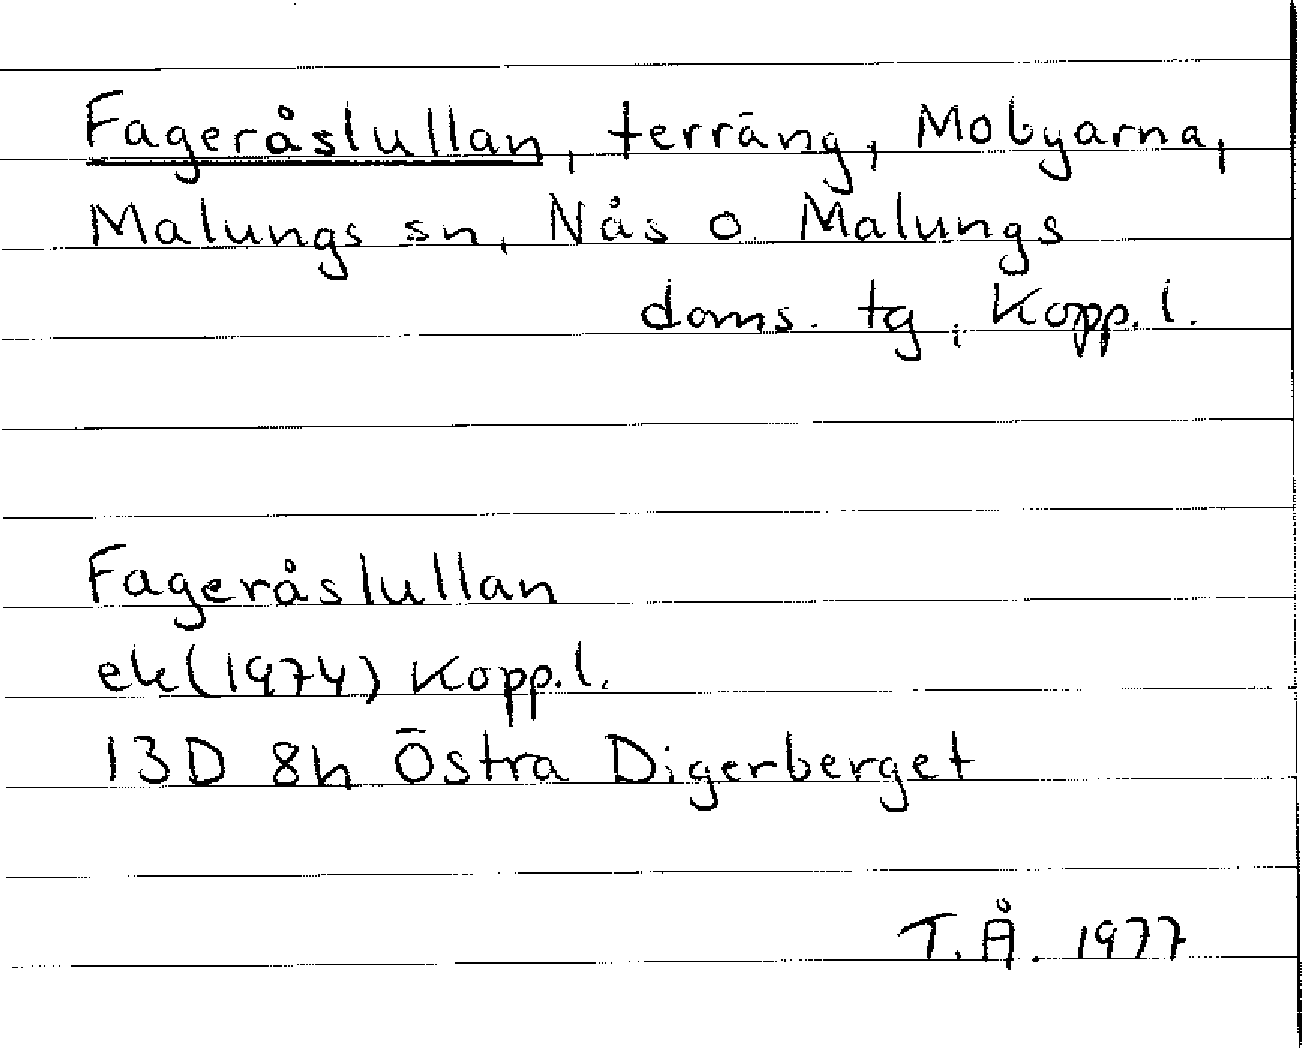 Fageråslullan, terräng, Mobyarna,
Malungs sn, Nås o. Malungs
doms. tg, Kopp. l.
Fageråslullan
ek (1974) Kopp. l.
13D 8h Östra Digerberget
T. Å. 1977